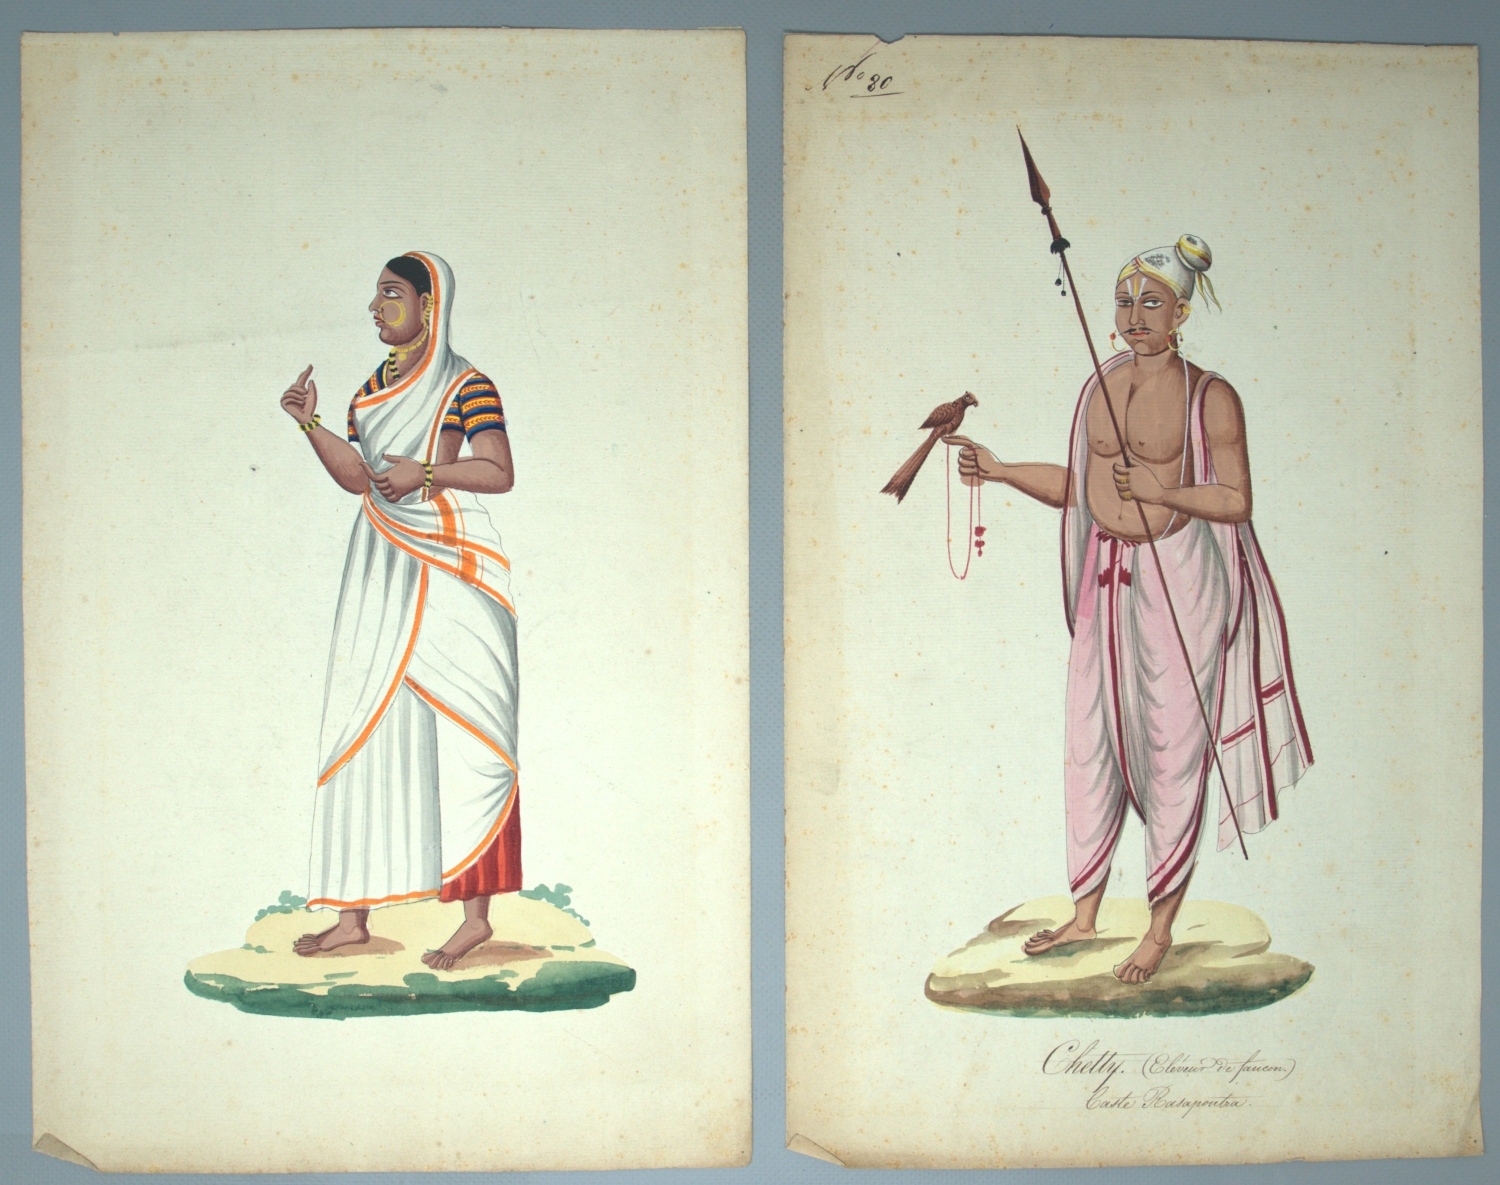 No 80
Chetty. (Eléveur de faucon.)
Caste Rasapoutra.